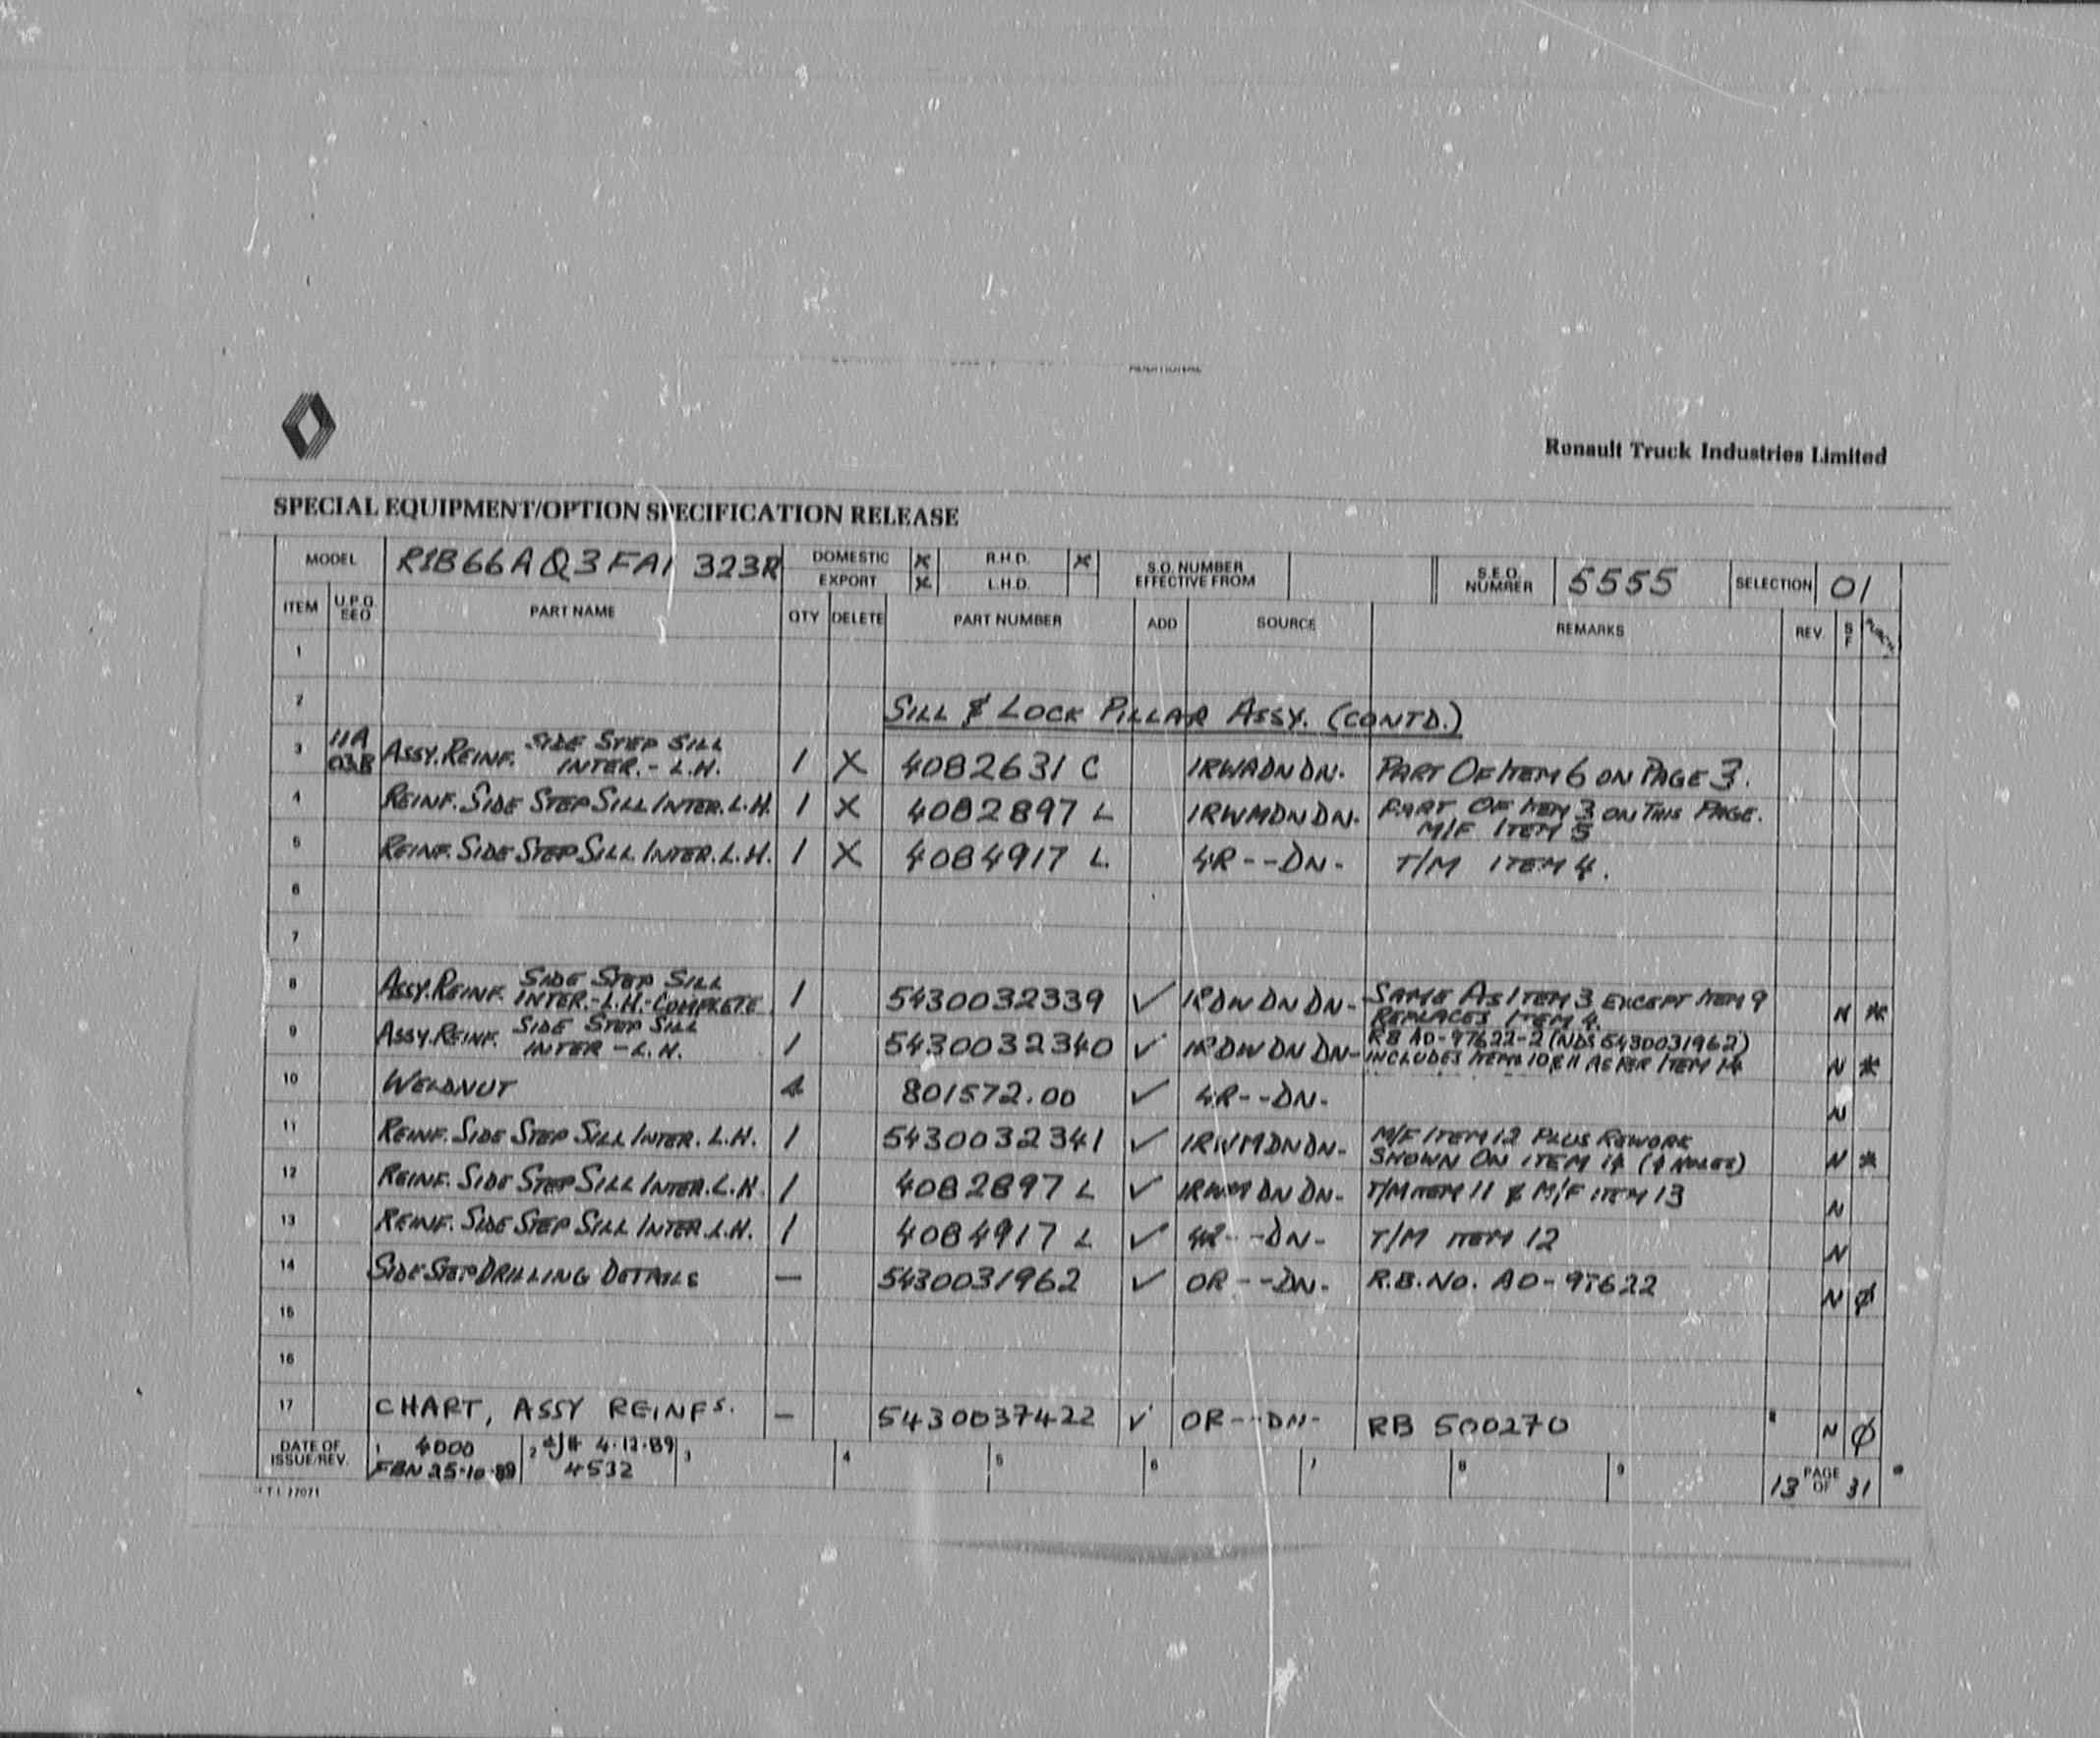 Renault Truck Industries Limited
SPECIAL EQUIPMENT/OPTION SPECIFICATION RELEASE
MODEL R1B66AQ3FA1 323R DOMESTIC X R.H.D. X S.O. NUMBER EFFECTIVE FROM S.E.O. NUMBER 5555 SELECTION 01
EXPORT X L.H.D.
ITEM U.P.G. SEO PART NAME QTY DELETE PART NUMBER ADD SOURCE REMARKS REV. S F
1
2 SILL & LOCK PILLAR ASSY. (CONTD.)
3 11A 03B ASSY. REINF. SIDE STEP SILL INTER. - L.H. 1 X 4082631 C 1RWADNDN. PART OF ITEM 6 ON PAGE 3.
4 REINF. SIDE STEP SILL INTER. L.H. 1 X 4082897 L 1RWMDNDN. PART OF ITEM 3 ON THIS PAGE.
M/F ITEM 5
5 REINF. SIDE STEP SILL INTER. L.H. 1 X 4084917 L 4R--DN- T/M ITEM 4.
6
7
8 ASSY. REINF. SIDE STEP SILL INTER.-L.H.-COMPLETE 1 5430032339 ✓ 1RDWDNDN- SAME AS ITEM 3 EXCEPT ITEM 9
REPLACES ITEM 4. N *
9 ASSY. REINF. SIDE STEP SILL INTER - L.H. 1 5430032340 ✓ 1RDWDNDN- RB AO-97622-2 (NDS 5430031962)
INCLUDES ITEMS 10 & 11 AS PER ITEM 14 N *
10 WELDNUT 4 801572.00 ✓ 4R--DN- N
11 REINF. SIDE STEP SILL INTER. L.H. 1 5430032341 ✓ 1RWMDNDN- M/F ITEM 12 PLUS REWORK
SHOWN ON ITEM 14 (4 HOLES) N *
12 REINF. SIDE STEP SILL INTER. L.H. 1 4082897 L ✓ 1RWMDNDN- T/M ITEM 11 & M/F ITEM 13 N
13 REINF. SIDE STEP SILL INTER. L.H. 1 4084917 L ✓ 4R--DN- T/M ITEM 12 N
14 SIDE STEP DRILLING DETAILS — 5430031962 ✓ OR--DN- R.B. NO. AO-97622 N ø
15
16
17 CHART, ASSY REINFS. — 5430037422 ✓ OR--DN- RB 500270 N ø
DATE OF ISSUE/REV. 1 4000 2 4.12.89 3 4 5 6 7 8 9 13 PAGE OF 31
FBN 25.10.89 4532